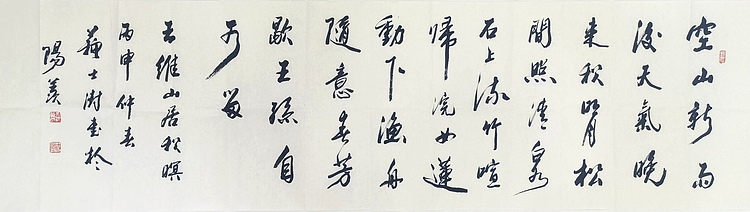 空山新雨
後天氣晚
來秋明月松
間照清泉
石上流竹喧
歸浣女蓮
動下漁舟
隨意春芳
歇王孫自
可留
王維山居秋暝
丙申仲春
蘇士澍書於
陽羨